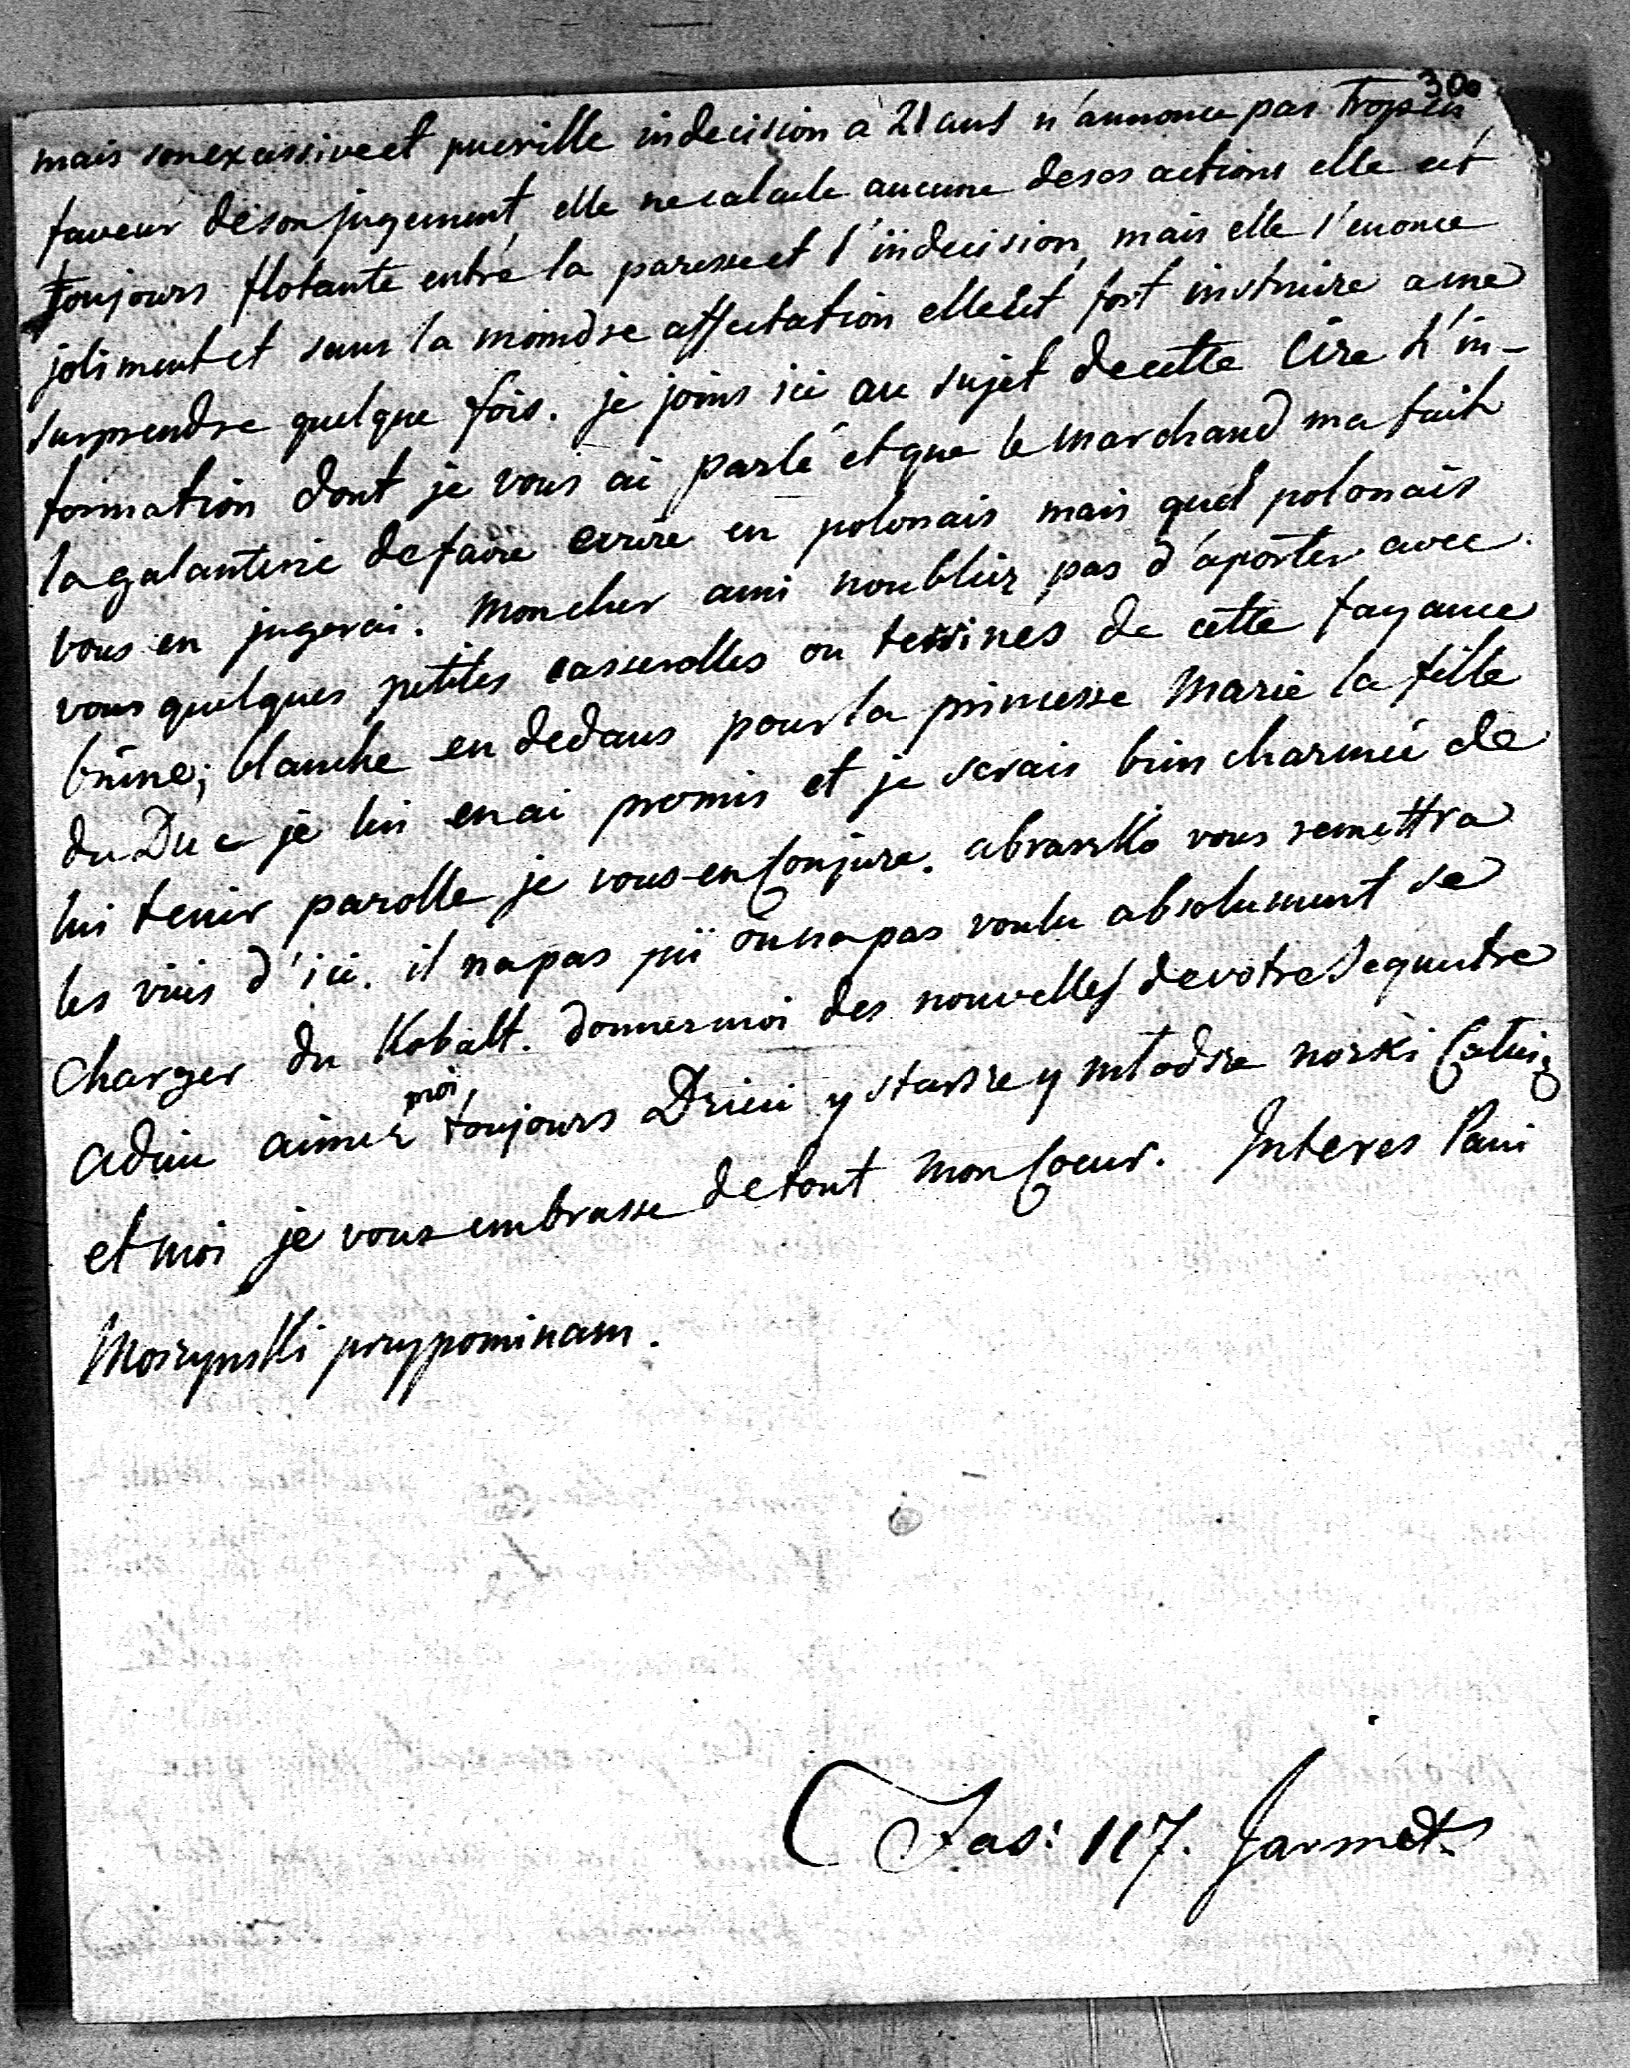 300
mais son excessive et puerille indecision a 21 ans n'annonce pas trop en
faveur de son jugement, elle ne calcule aucune de ses actions elle est
toujours flotante entre la paresse et l'indecision, mais elle s'enonce
joliment et sans la moindre affectation elle est fort instruire a me
surprendre quelque fois. je joins ici au sujet de cette Cire l'in-
formation dont je vous ai parlé et que le marchand ma fait
la galanterie de faire ecrire en polonais mais quel polonais
vous en jugerai. Mon cher ami noubliez pas d'aporter avec
vous quelques petites casserolles ou terrines de cette fayance
brune; blanche en dedans pour la princesse Marie la fille
du Duc je lui en ai promis et je serais bien charmée de
lui tenir parolle je vous en Conjure. abraszko vous remettra
les vins d'ici. il na pas pü ou na pas voulu absolument se
Charger du Kobalt. donnez moi des nouvelles de votre Sequestre
adieu aimez moi, toujours Dzieci y starsze y młodsze norzki Całuią
et moi je vous embrasse de tout mon Coeur. Interes Pani
Moszynski przypominam.
Fas: 117. Jarmet.